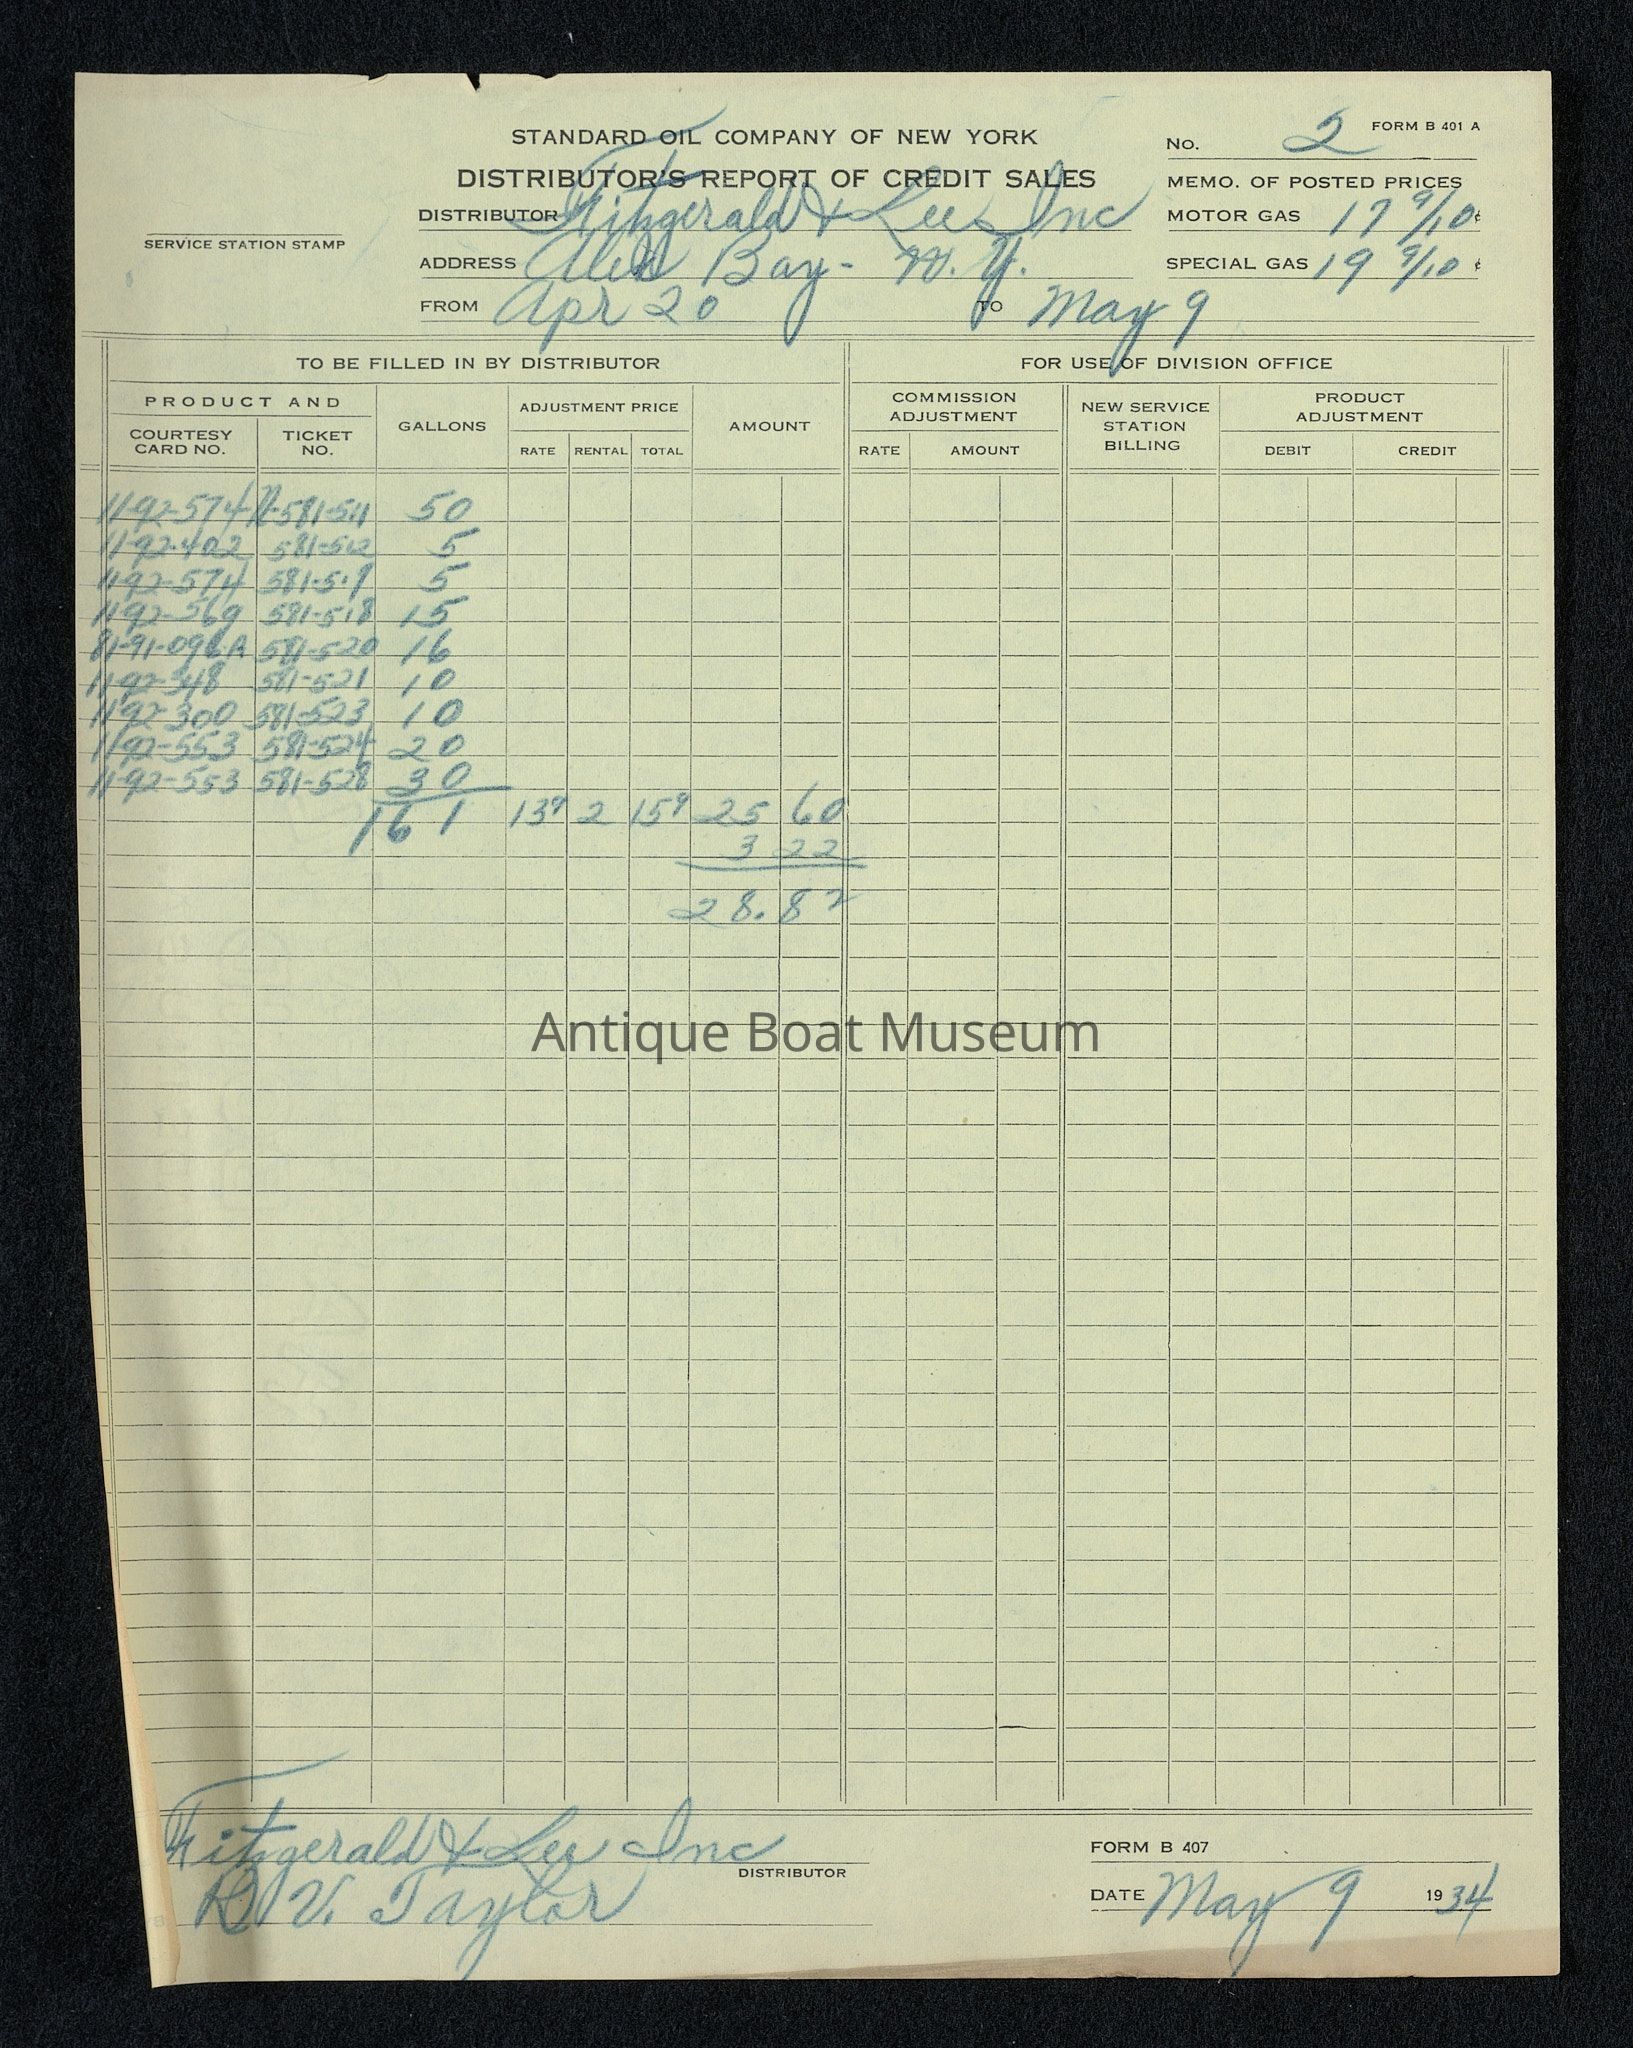 FORM B 401 A
STANDARD OIL COMPANY OF NEW YORK
No. 2
DISTRIBUTOR'S REPORT OF CREDIT SALES
MEMO. OF POSTED PRICES
DISTRIBUTOR Fitzgerald & Lee Inc
MOTOR GAS 17 9/10 ¢
SERVICE STATION STAMP
ADDRESS Alex Bay - N. Y.
SPECIAL GAS 19 9/10 ¢
FROM Apr 20 TO May 9
TO BE FILLED IN BY DISTRIBUTOR FOR USE OF DIVISION OFFICE
PRODUCT AND GALLONS ADJUSTMENT PRICE AMOUNT COMMISSION ADJUSTMENT NEW SERVICE STATION BILLING PRODUCT ADJUSTMENT
COURTESY CARD NO. TICKET NO. RATE RENTAL TOTAL RATE AMOUNT DEBIT CREDIT
11-92-574 581-511 50
11-92-402 581-512 5
11-92-574 581-519 5
11-92-569 581-518 15
81-91-096-A 581-520 16
11-92-348 581-521 10
11-92-300 581-523 10
11-92-553 581-524 20
11-92-553 581-528 30
161 13⁹ 2 15⁹ 25 60
3 22
28.82
Antique Boat Museum
Fitzgerald & Lee Inc
DISTRIBUTOR
FORM B 407
R V. Taylor
DATE May 9 1934